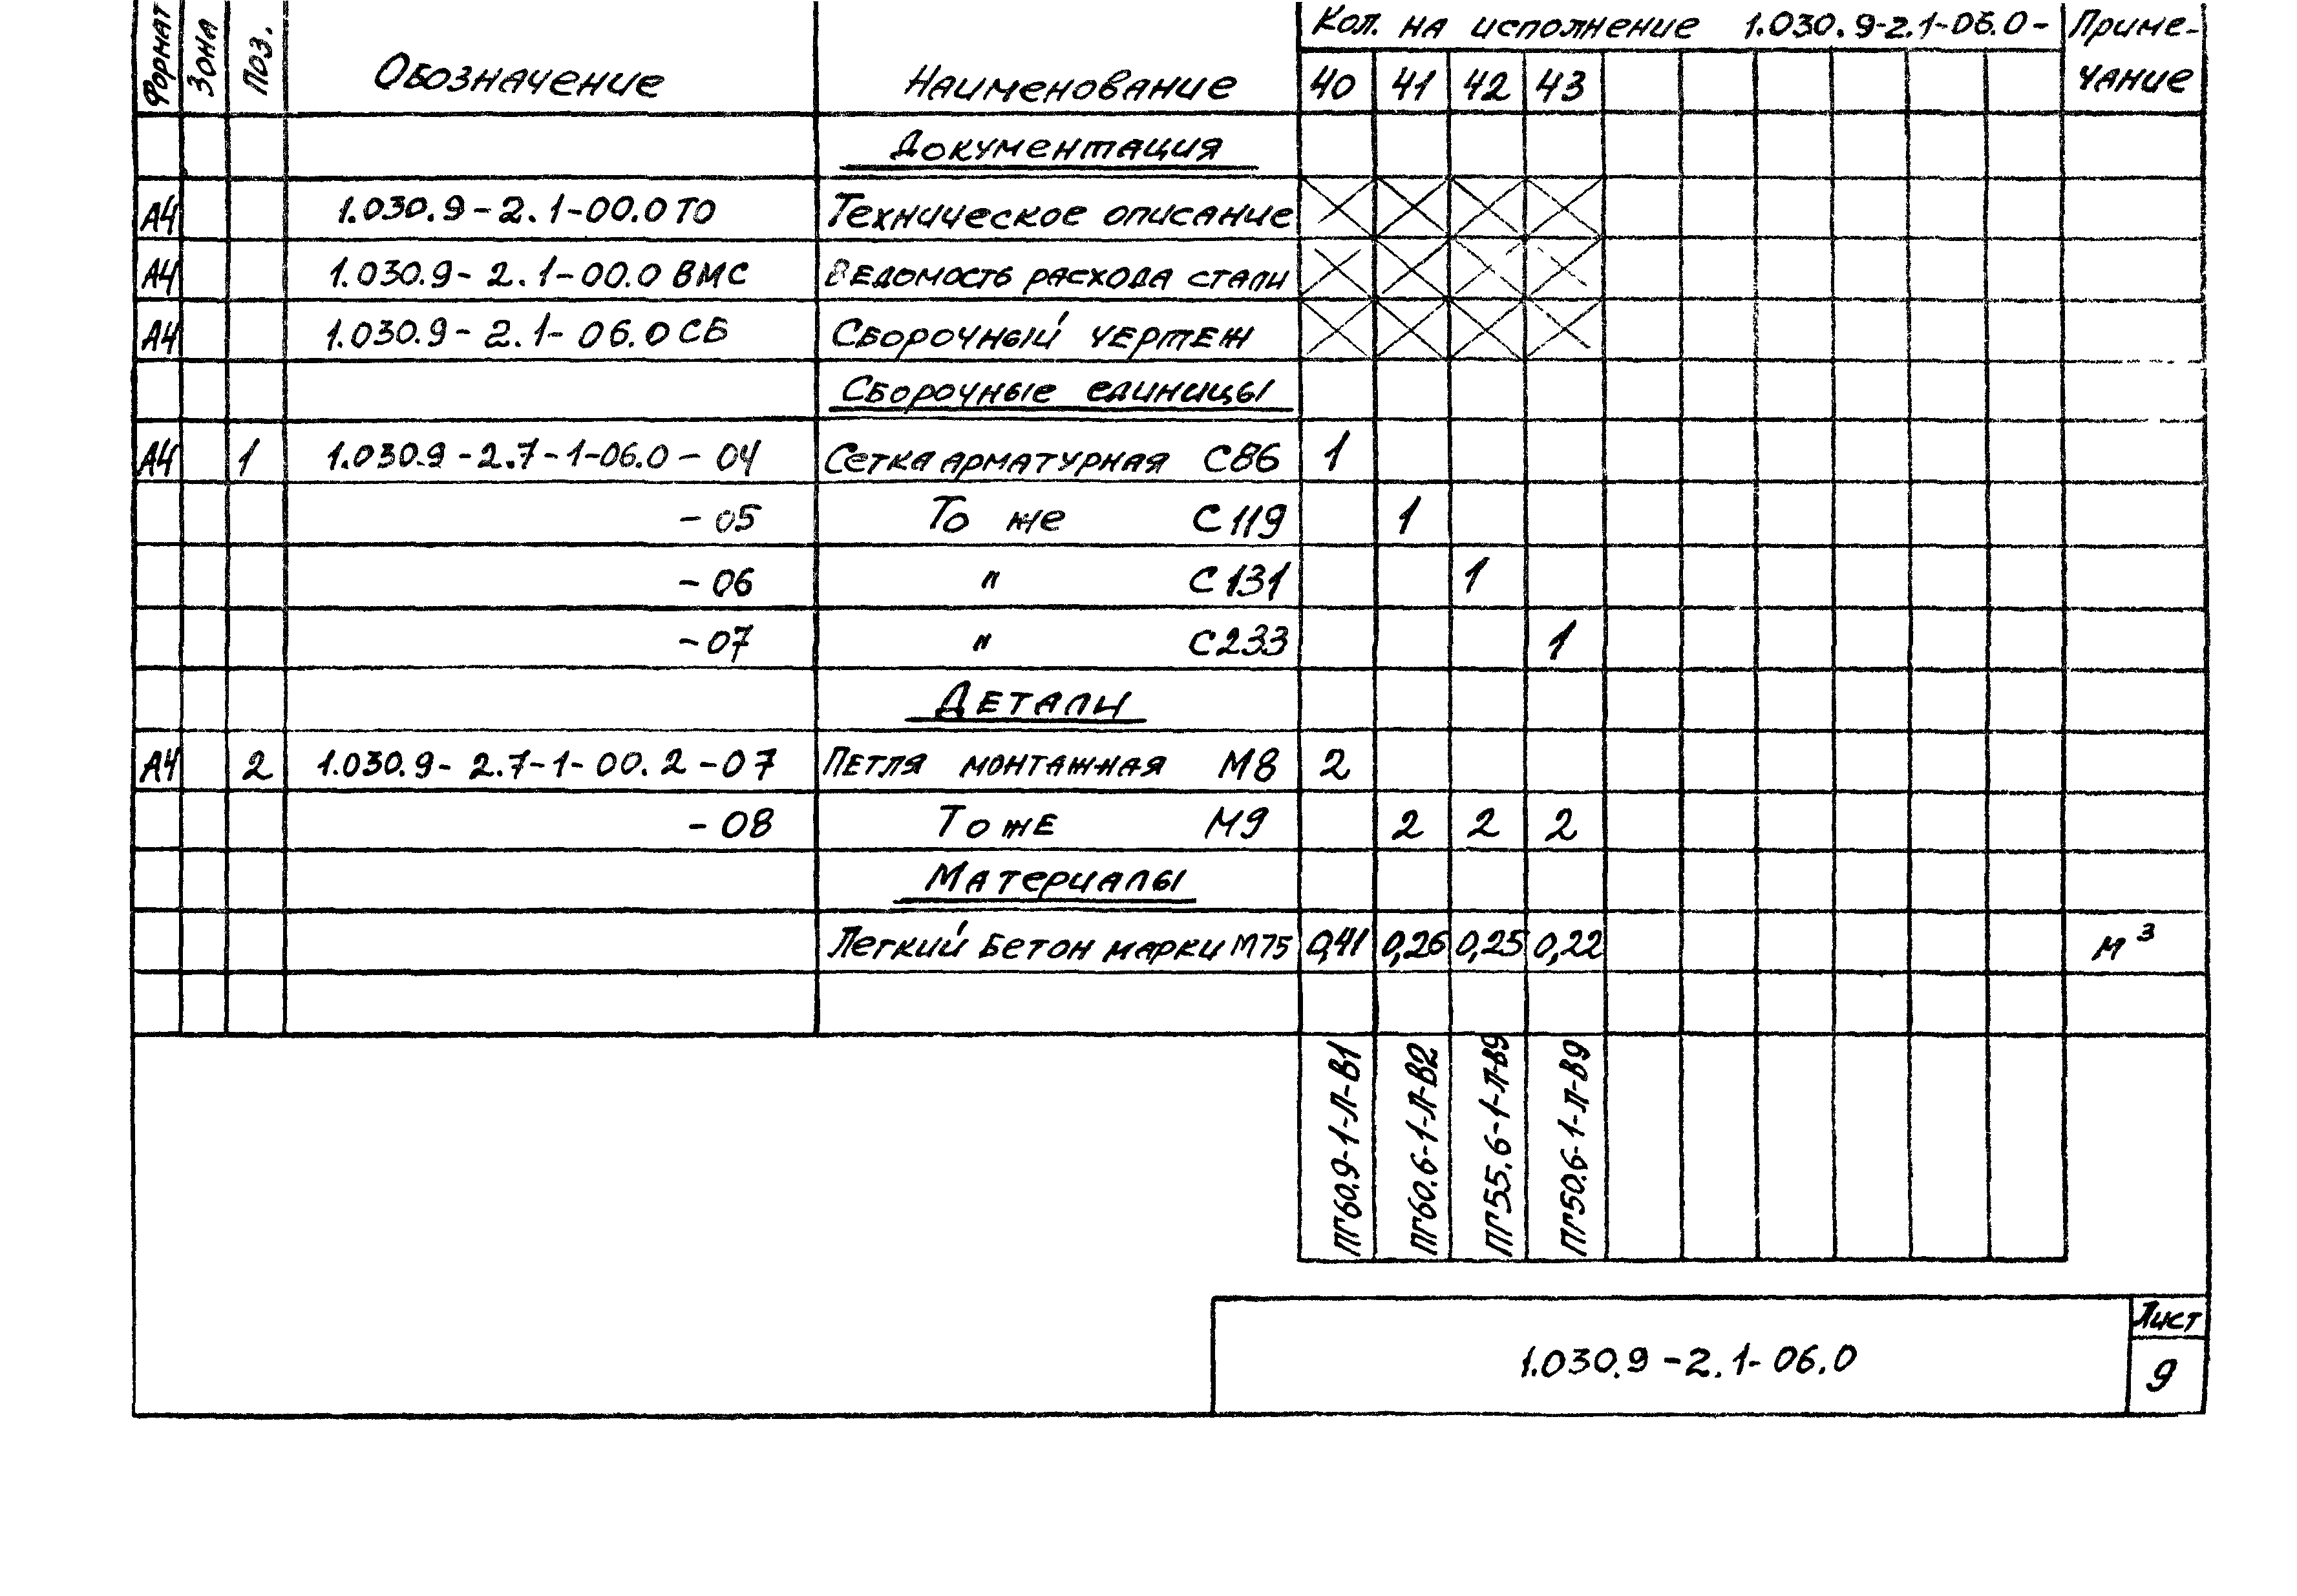 Формат Зона Поз. Обозначение Наименование Кол. на исполнение 1.030.9-2.1-06.0- Приме-
40 41 42 43 чание
Документация
А4 1.030.9-2.1-00.0 ТО Техническое описание
А4 1.030.9-2.1-00.0 ВМС Ведомость расхода стали
А4 1.030.9-2.1-06.0 СБ Сборочный чертеж
Сборочные единицы
А4 1 1.030.9-2.7-1-06.0-04 Сетка арматурная С86 1
-05 То же С119 1
-06 " С131 1
-07 " С233 1
Детали
А4 2 1.030.9-2.7-1-00.2-07 Петля монтажная М8 2
-08 То же М9 2 2 2
Материалы
Легкий бетон марки М75 0,41 0,26 0,25 0,22 м³
ПГ60.9-1-Л-В1 ПГ60.6-1-Л-В2 ПГ55.6-1-Л-В9 ПГ50.6-1-Л-В9
1.030.9-2.1-06.0 Лист
9